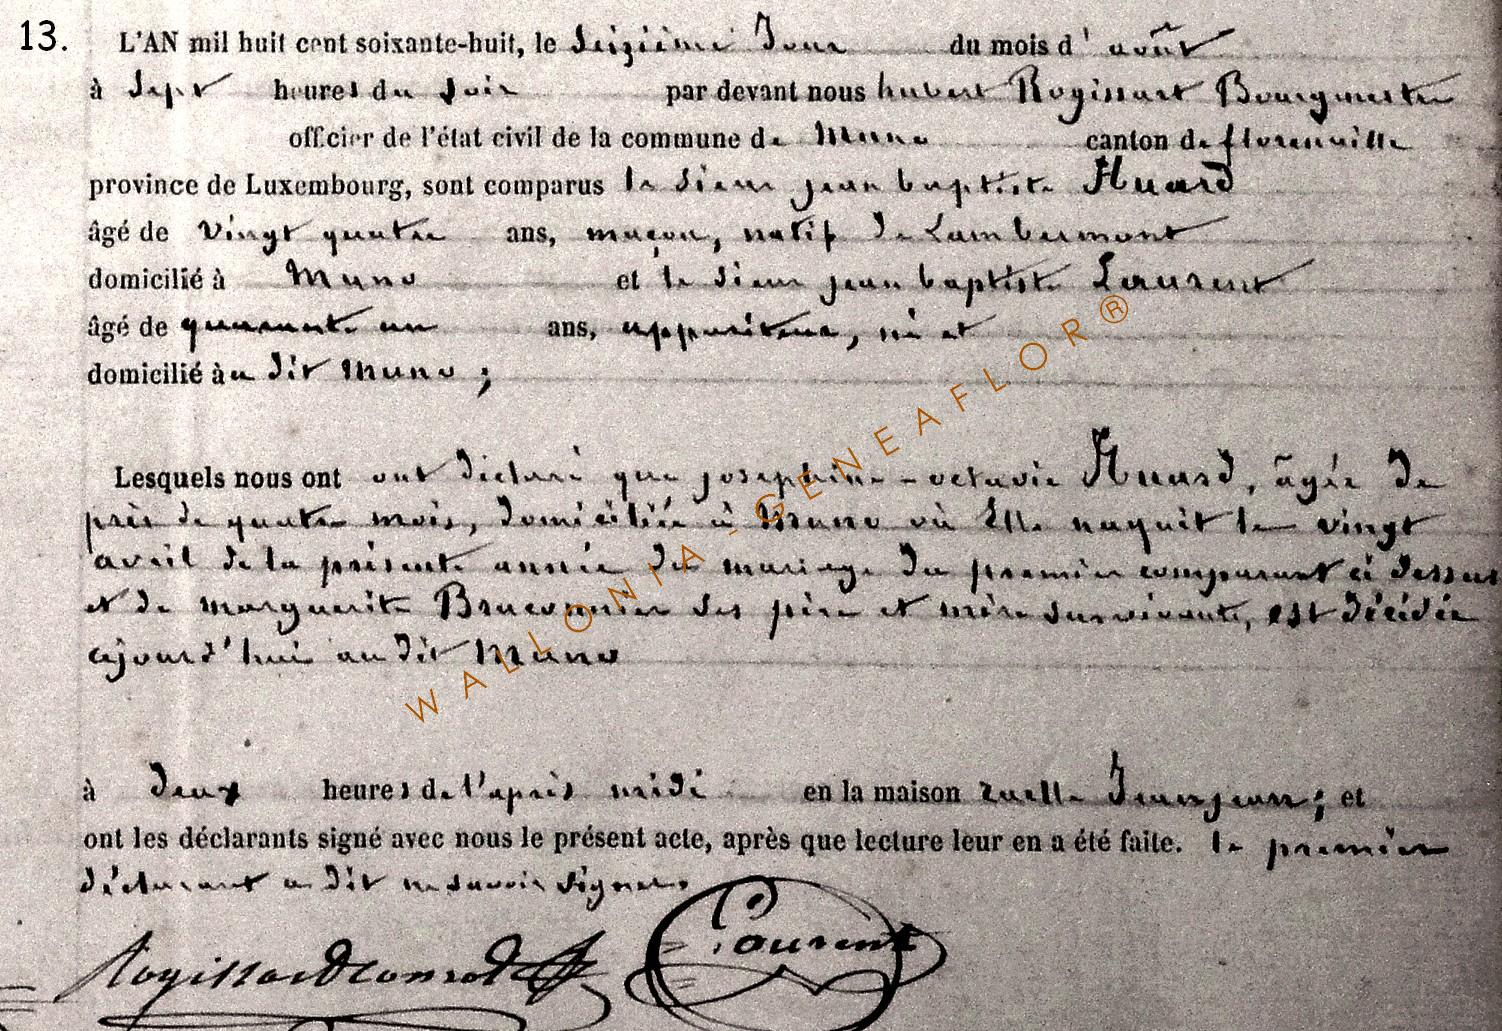 13.
L'AN mil huit cent soixante-huit, le seizième Jour du mois d'août
à sept heures du soir par devant nous hubert Rogissart Bourgmestre
officier de l'état civil de la commune de Muno canton de florenville
province de Luxembourg, sont comparus le sieur jean baptiste Huard
âgé de vingt quatre ans, maçon, natif de Lambermont
domicilié à Muno et le sieur jean baptiste Laurent
âgé de quarante un ans, appariteur, né et
domicilié au dit Muno ;
Lesquels nous ont ont déclaré que josephine-octavie Huard, âgée de
près de quatre mois, domiciliée à Muno où Elle naquit le vingt
avril de la présente année du mariage du premier comparant ci dessus
et de marguerite Braconnier ses père et mère survivants, est décédée
ajourd'hui au dit Muno
à deux heures de l'après midi en la maison ruelle Jeanjean ; et
ont les déclarants signé avec nous le présent acte, après que lecture leur en a été faite. le premier
déclarant a dit ne savoir signer.
Rogissart Laurent
WALLONIA-GENEAFLOR®